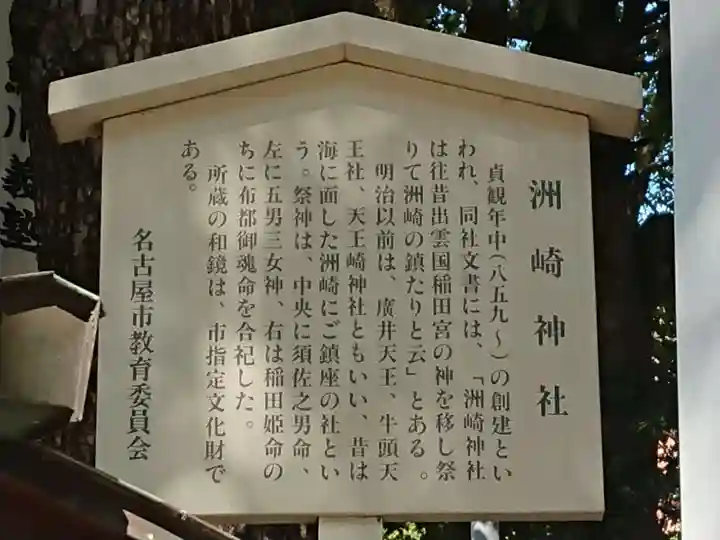 洲崎神社
貞観年中(八五九〜)の創建とい
われ、同社文書には、「洲崎神社
は往昔出雲国稲田宮の神を移し祭
りて洲崎の鎮たりと云」とある。
明治以前は、廣井天王、牛頭天
王社、天王崎神社ともいい、昔は
海に面した洲崎にご鎮座の社とい
う。祭神は、中央に須佐之男命、
左に五男三女神、右は稲田姫命の
ちに布都御魂命を合祀した。
所蔵の和鏡は、市指定文化財で
ある。
名古屋市教育委員会
川義塾